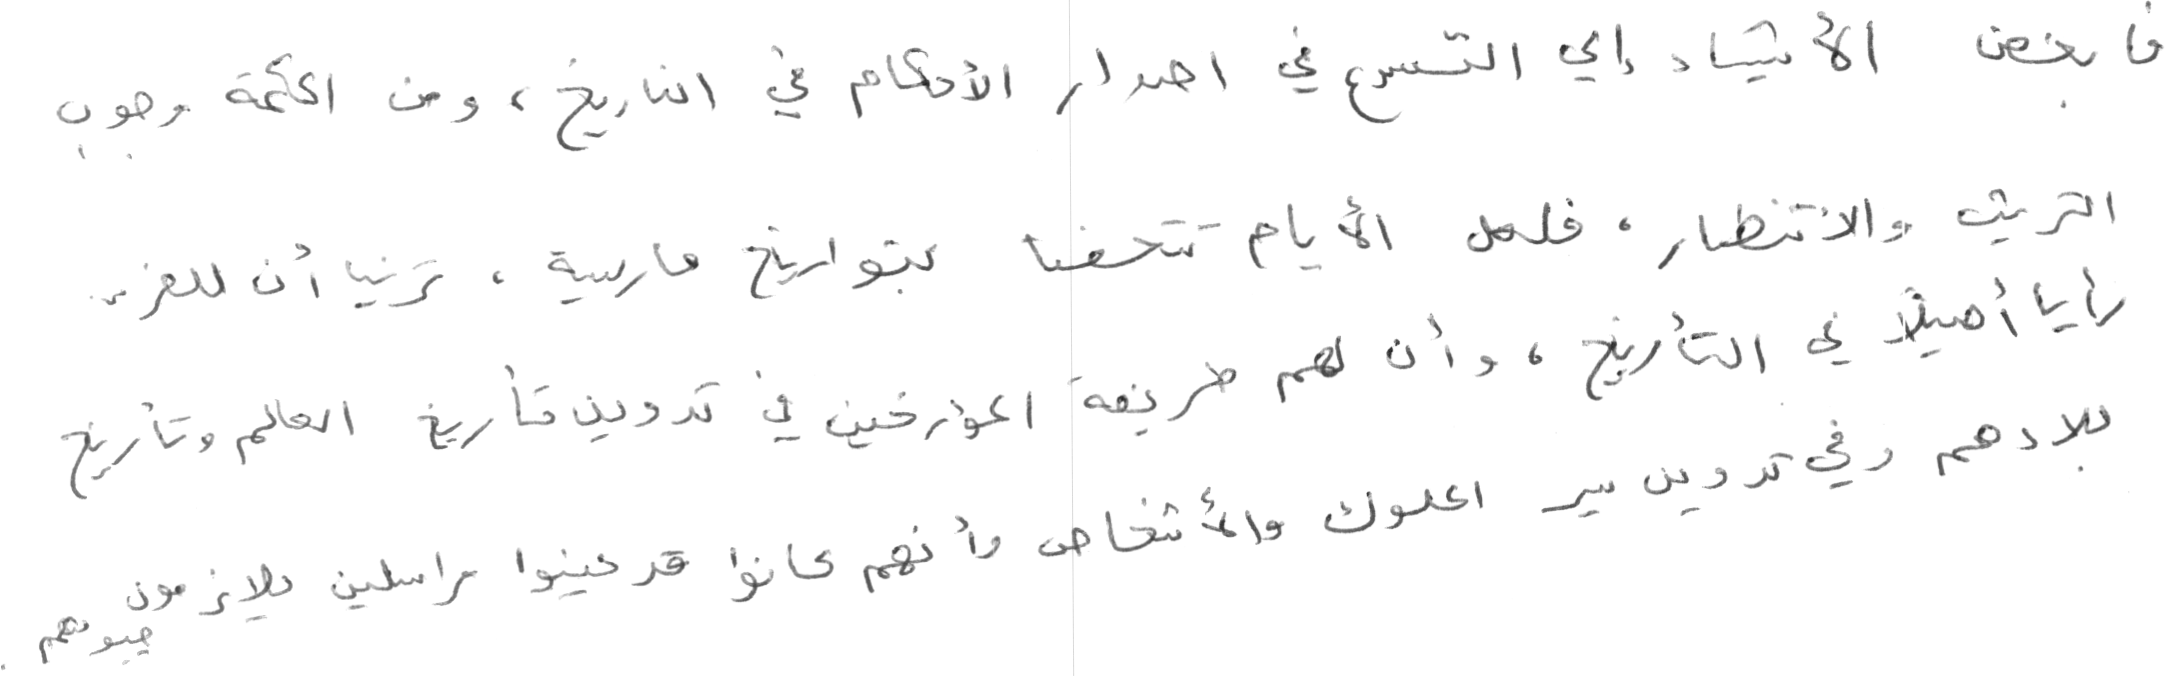 فأبغض الأشياء إلي التسرع في اصدار الأحكام في التاريخ، ومن الحكمة وجوب
التريث والانتظار، فلعل الأيام تتحفنا بتواريخ فارسية، ترنيا أن للفرس
رأيا أصيلًا في التأريخ، وأن لهم طريقة المؤرخين في تدوين تأريخ العالم وتأريخ
بلادهم وفي تدوين سير الملوك والأشخاص وأنهم كانوا قد عينوا مراسلين يلازمون
جيوشهم.